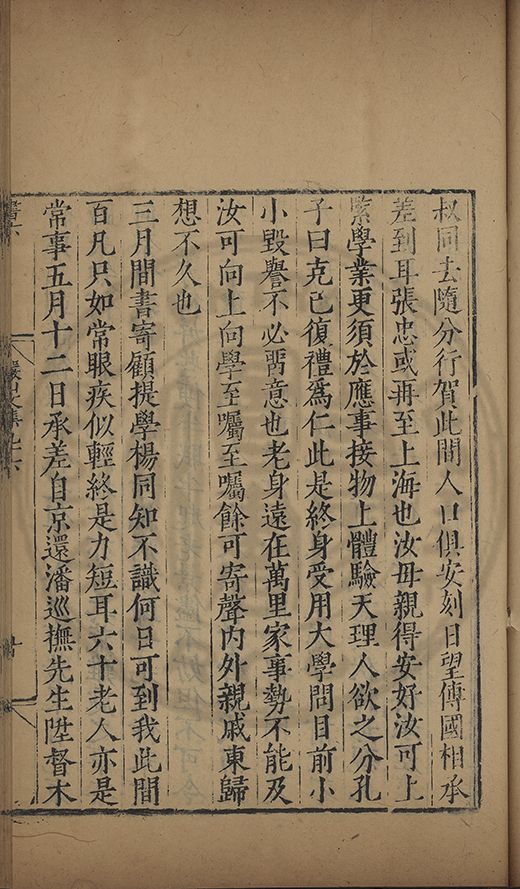 叔同去隨分行賀此間人口俱安刻日望傳國相承
差到耳張忠或再至上海也汝母親得安好汝可上
緊學業更須於應事接物上體驗天理人欲之分孔
子曰克己復禮爲仁此是終身受用大學問目前小
小毀譽不必畱意也老身遠在萬里家事勢不能及
汝可向上向學至囑至囑餘可寄聲內外親戚東歸
想不久也
三月間書寄顧提學楊同知不識何日可到我此間
百凡只如常眼疾似輕終是力短耳六十老人亦是
常事五月十二日承差自京還潘巡撫先生陞督木